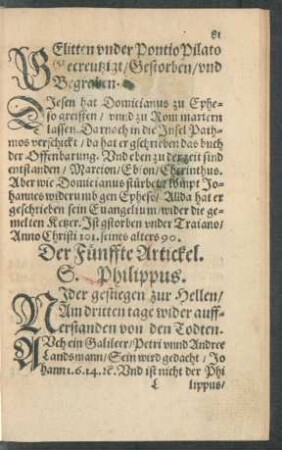 81
GElitten vnder Pontio Pilato
Gecreutzigt/Gestorben/vnd
Begraben.
DIesen hat Domicianus zu Ephe-
so greiffen/ vnnd zu Rom martern
lassen. Darnoch in die Insel Path-
mos verschickt/ da hat er geschrieben das buch
der Offenbarung. Vnd eben zu der zeit sind
entstanden/ Marcion/Ebion/Cherinthus.
Aber wie Domicianus stürbe/ kompt Jo-
hannes widerumb gen Epheso/ Alda hat er
geschrieben sein Euangelium/ wider die ge-
melten Ketzer. Ist gstorben vnder Traiano/
Anno Christi 101. seines alters 90.
Der Fünffte Artickel.
S. Philippus.
NIder gestiegen zur Hellen/
Am dritten tage wider auff-
erstanden von den Todten.
AVch ein Galileer/Petri vnnd Andree
Landsmann/Sein wird gedacht/ Jo
hann 1. 6. 14. 1c. Vnd ist nicht der Phi
L lippus/